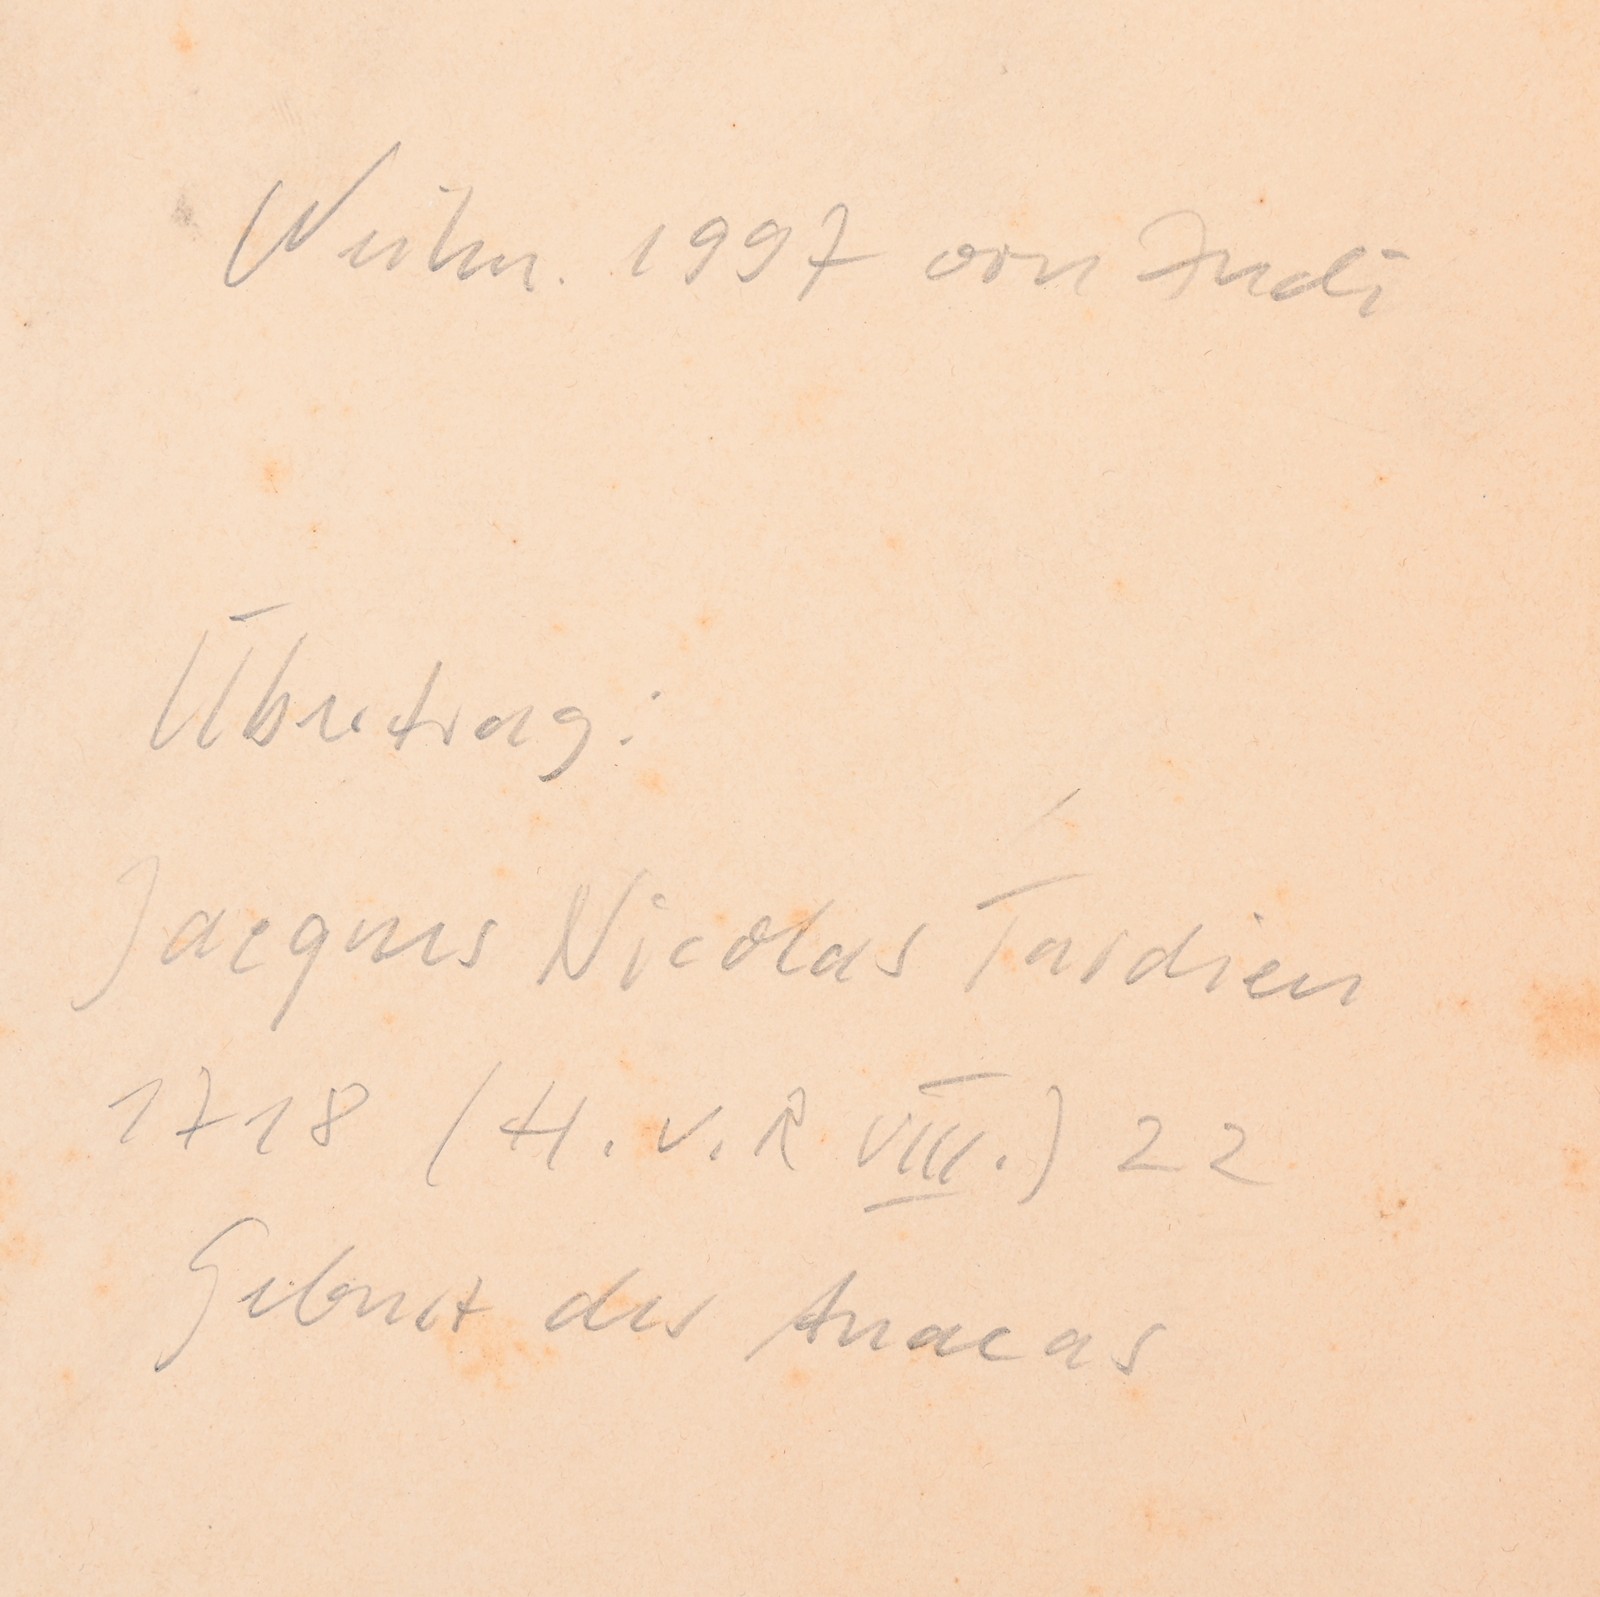 Weihn. 1997 von Andi
Übertrag:
Jacques Nicolas Tardieu
1718 (H. v. R VIII.) 22
Geburt des Anacas